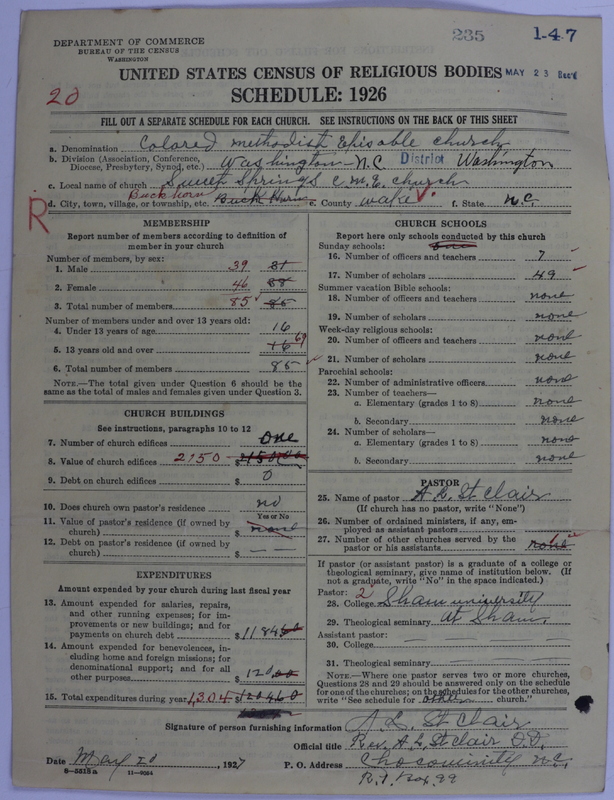 235 1-4-7
DEPARTMENT OF COMMERCE
BUREAU OF THE CENSUS
WASHINGTON
UNITED STATES CENSUS OF RELIGIOUS BODIES MAY 23 Rec'd
20 SCHEDULE: 1926
FILL OUT A SEPARATE SCHEDULE FOR EACH CHURCH. SEE INSTRUCTIONS ON THE BACK OF THIS SHEET
a. Denomination Colored Methodist Episable church
b. Division (Association, Conference, Diocese, Presbytery, Synod, etc.) Washington - N.C District Washington
c. Local name of church Saucet Springs C M E. church
Buckhorn
d. City, town, village, or township, etc. Buck Hurne e. County Wake f. State N.C.
R
MEMBERSHIP
Report number of members according to definition of
member in your church
Number of members, by sex:
1. Male 39 31
2. Female 46 88
3. Total number of members 85 85
Number of members under and over 13 years old:
4. Under 13 years of age 16
5. 13 years old and over 16 69
6. Total number of members 85
NOTE.—The total given under Question 6 should be the
same as the total of males and females given under Question 3.
CHURCH BUILDINGS
See instructions, paragraphs 10 to 12
7. Number of church edifices one
8. Value of church edifices 2150 $ 2150.00
9. Debt on church edifices $ 0
10. Does church own pastor's residence no
Yes or No
11. Value of pastor's residence (if owned by
church) $ none
12. Debt on pastor's residence (if owned by
church) $ — —
EXPENDITURES
Amount expended by your church during last fiscal year
13. Amount expended for salaries, repairs,
and other running expenses; for im-
provements or new buildings; and for
payments on church debt $ 1184 60
14. Amount expended for benevolences, in-
cluding home and foreign missions; for
denominational support; and for all
other purposes $ 120 00
15. Total expenditures during year 1304 $ 1204 60
CHURCH SCHOOLS
Report here only schools conducted by this church
Sunday schools:
16. Number of officers and teachers 7
17. Number of scholars 49
Summer vacation Bible schools:
18. Number of officers and teachers none
19. Number of scholars none
Week-day religious schools:
20. Number of officers and teachers none
21. Number of scholars none
Parochial schools:
22. Number of administrative officers none
23. Number of teachers—
a. Elementary (grades 1 to 8) none
b. Secondary none
24. Number of scholars—
a. Elementary (grades 1 to 8) none
b. Secondary none
PASTOR
25. Name of pastor A. L. St Clair
(If church has no pastor, write "None")
26. Number of ordained ministers, if any, em-
ployed as assistant pastors
27. Number of other churches served by the
pastor or his assistants none
If pastor (or assistant pastor) is a graduate of a college or
theological seminary, give name of institution below. (If
not a graduate, write "No" in the space indicated.)
Pastor: 2
28. College Sham university
29. Theological seminary at Sham.
Assistant pastor:
30. College
31. Theological seminary
NOTE.—Where one pastor serves two or more churches,
Questions 28 and 29 should be answered only on the schedule
for one of the churches; on the schedules for the other churches,
write "See schedule for other church."
Signature of person furnishing information A. L. St Clair
Official title Rev. A. L. St Clair D.D.
Date May 20, 1927 P. O. Address Chocowinity N.C.
8-5518 a 11-9054 R.1 Box 99